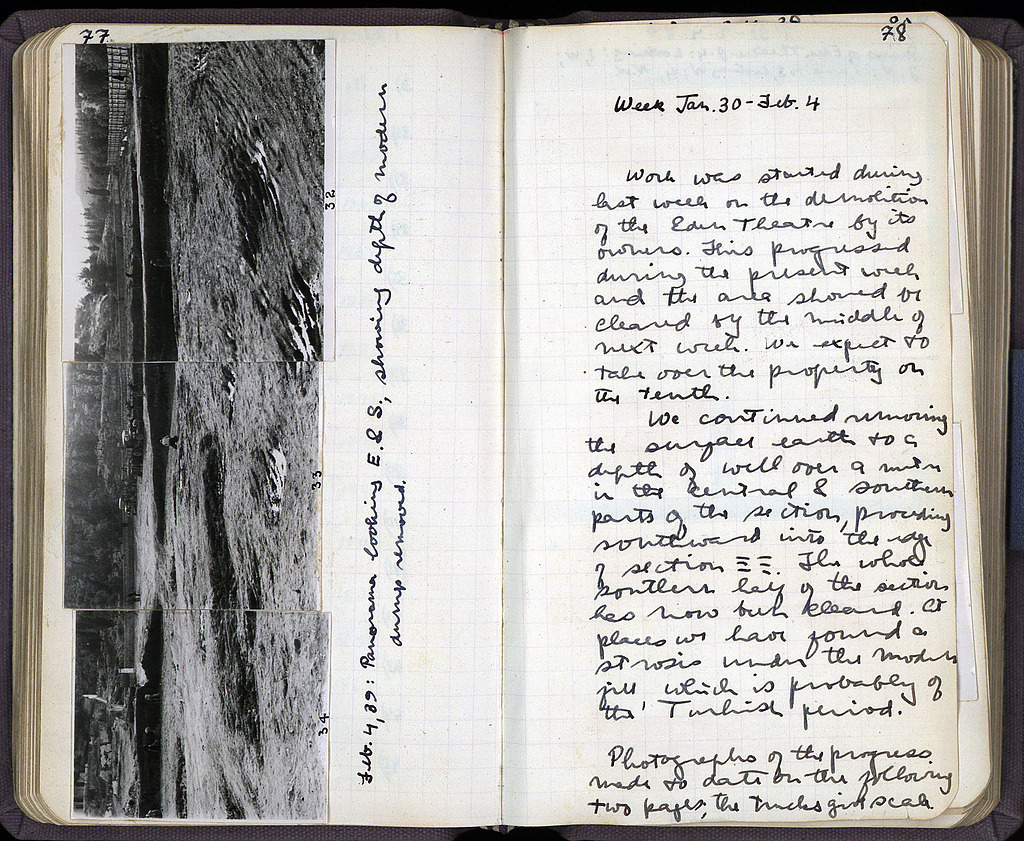 77
32
33
34
Feb. 4, 39: Panorama looking E. & S., showing depth of modern
dump removed.
78
Week Jan. 30 - Feb. 4
Work was started during
last week on the demolition
of the Eden Theatre by its
owners. This progressed
during the present week
and the area should be
cleared by the middle of
next week. We expect to
take over the property on
the tenth.
We continued removing
the surface earth to a
depth of well over a metre
in the central & southern
parts of the section, proceeding
southward into the edge
of section ΞΞ. The whole
southern half of the section
has now been cleared. At
places we have found a
strosis under the modern
fill, which is probably of
the Turkish period.
Photographs of the progress
made to date on the following
two pages; the trucks give scale